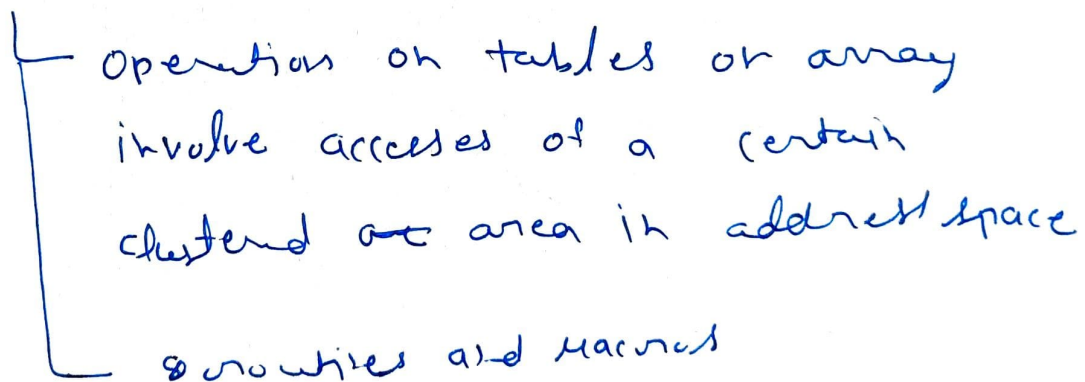 operations on tables or array
involve accesses of a certain
clustered area in address space
routines and macros